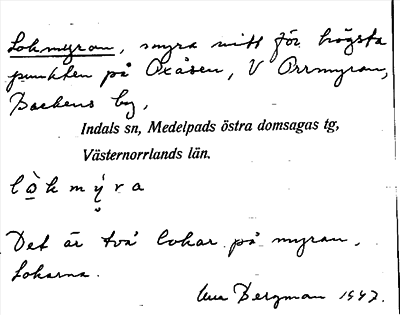 Lokmyran, myra mitt för högsta
punkten på Oxåsen, V Orrmyran,
Backens by,
Indals sn, Medelpads östra domsagas tg,
Västernorrlands län.
lò̲kmý̬ra
Det är två lokar på myran,
Lokarna.
Bergman 1947.